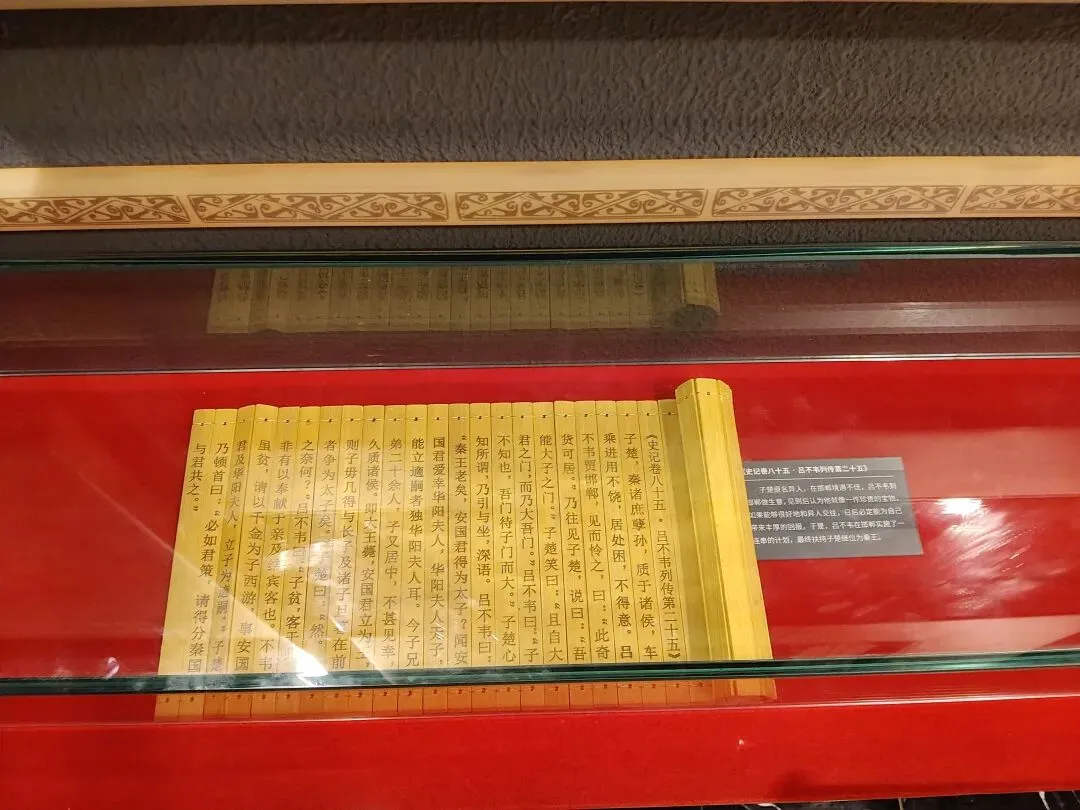 《史记卷八十五·吕不韦列传第二十五》
子楚,秦诸庶孽孙,质于诸侯,车
乘进用不饶,居处困,不得意。吕
不韦贾邯郸,见而怜之,曰:“此奇
货可居。”乃往见子楚,说曰:“吾
能大子之门。”子楚笑曰:“且自大
君之门,而乃大吾门。”吕不韦曰:“子
不知也,吾门待子门而大。”子楚心
知所谓,乃引与坐,深语。吕不韦曰:
“秦王老矣,安国君得为太子?闻安
国君爱幸华阳夫人,华阳夫人无子,
能立適嗣者独华阳夫人耳。今子兄
弟二十余人,子又居中,不甚见幸,
久质诸侯。即大王薨,安国君立为王,
则子毋几得与长子及诸子旦暮在前
者争为太子矣。”子楚曰:“然。
之奈何?”吕不韦曰:“子贫,客于
非有以奉献于亲及结宾客也。不韦
虽贫,请以千金为子西游,事安国
君及华阳夫人,立子为適嗣。”子楚
乃顿首曰:“必如君策,请得分秦国
与君共之。”
《史记卷八十五·吕不韦列传第二十五》
子楚原名异人,在邯郸境遇不佳,吕不韦到
邯郸做生意,见到后认为他就像一件珍贵的宝物,
如果能够很好地和异人交往,日后必定能为自己
带来丰厚的回报。于是,吕不韦在邯郸实施了一
连串的计划,最终扶持子楚继位为秦王。